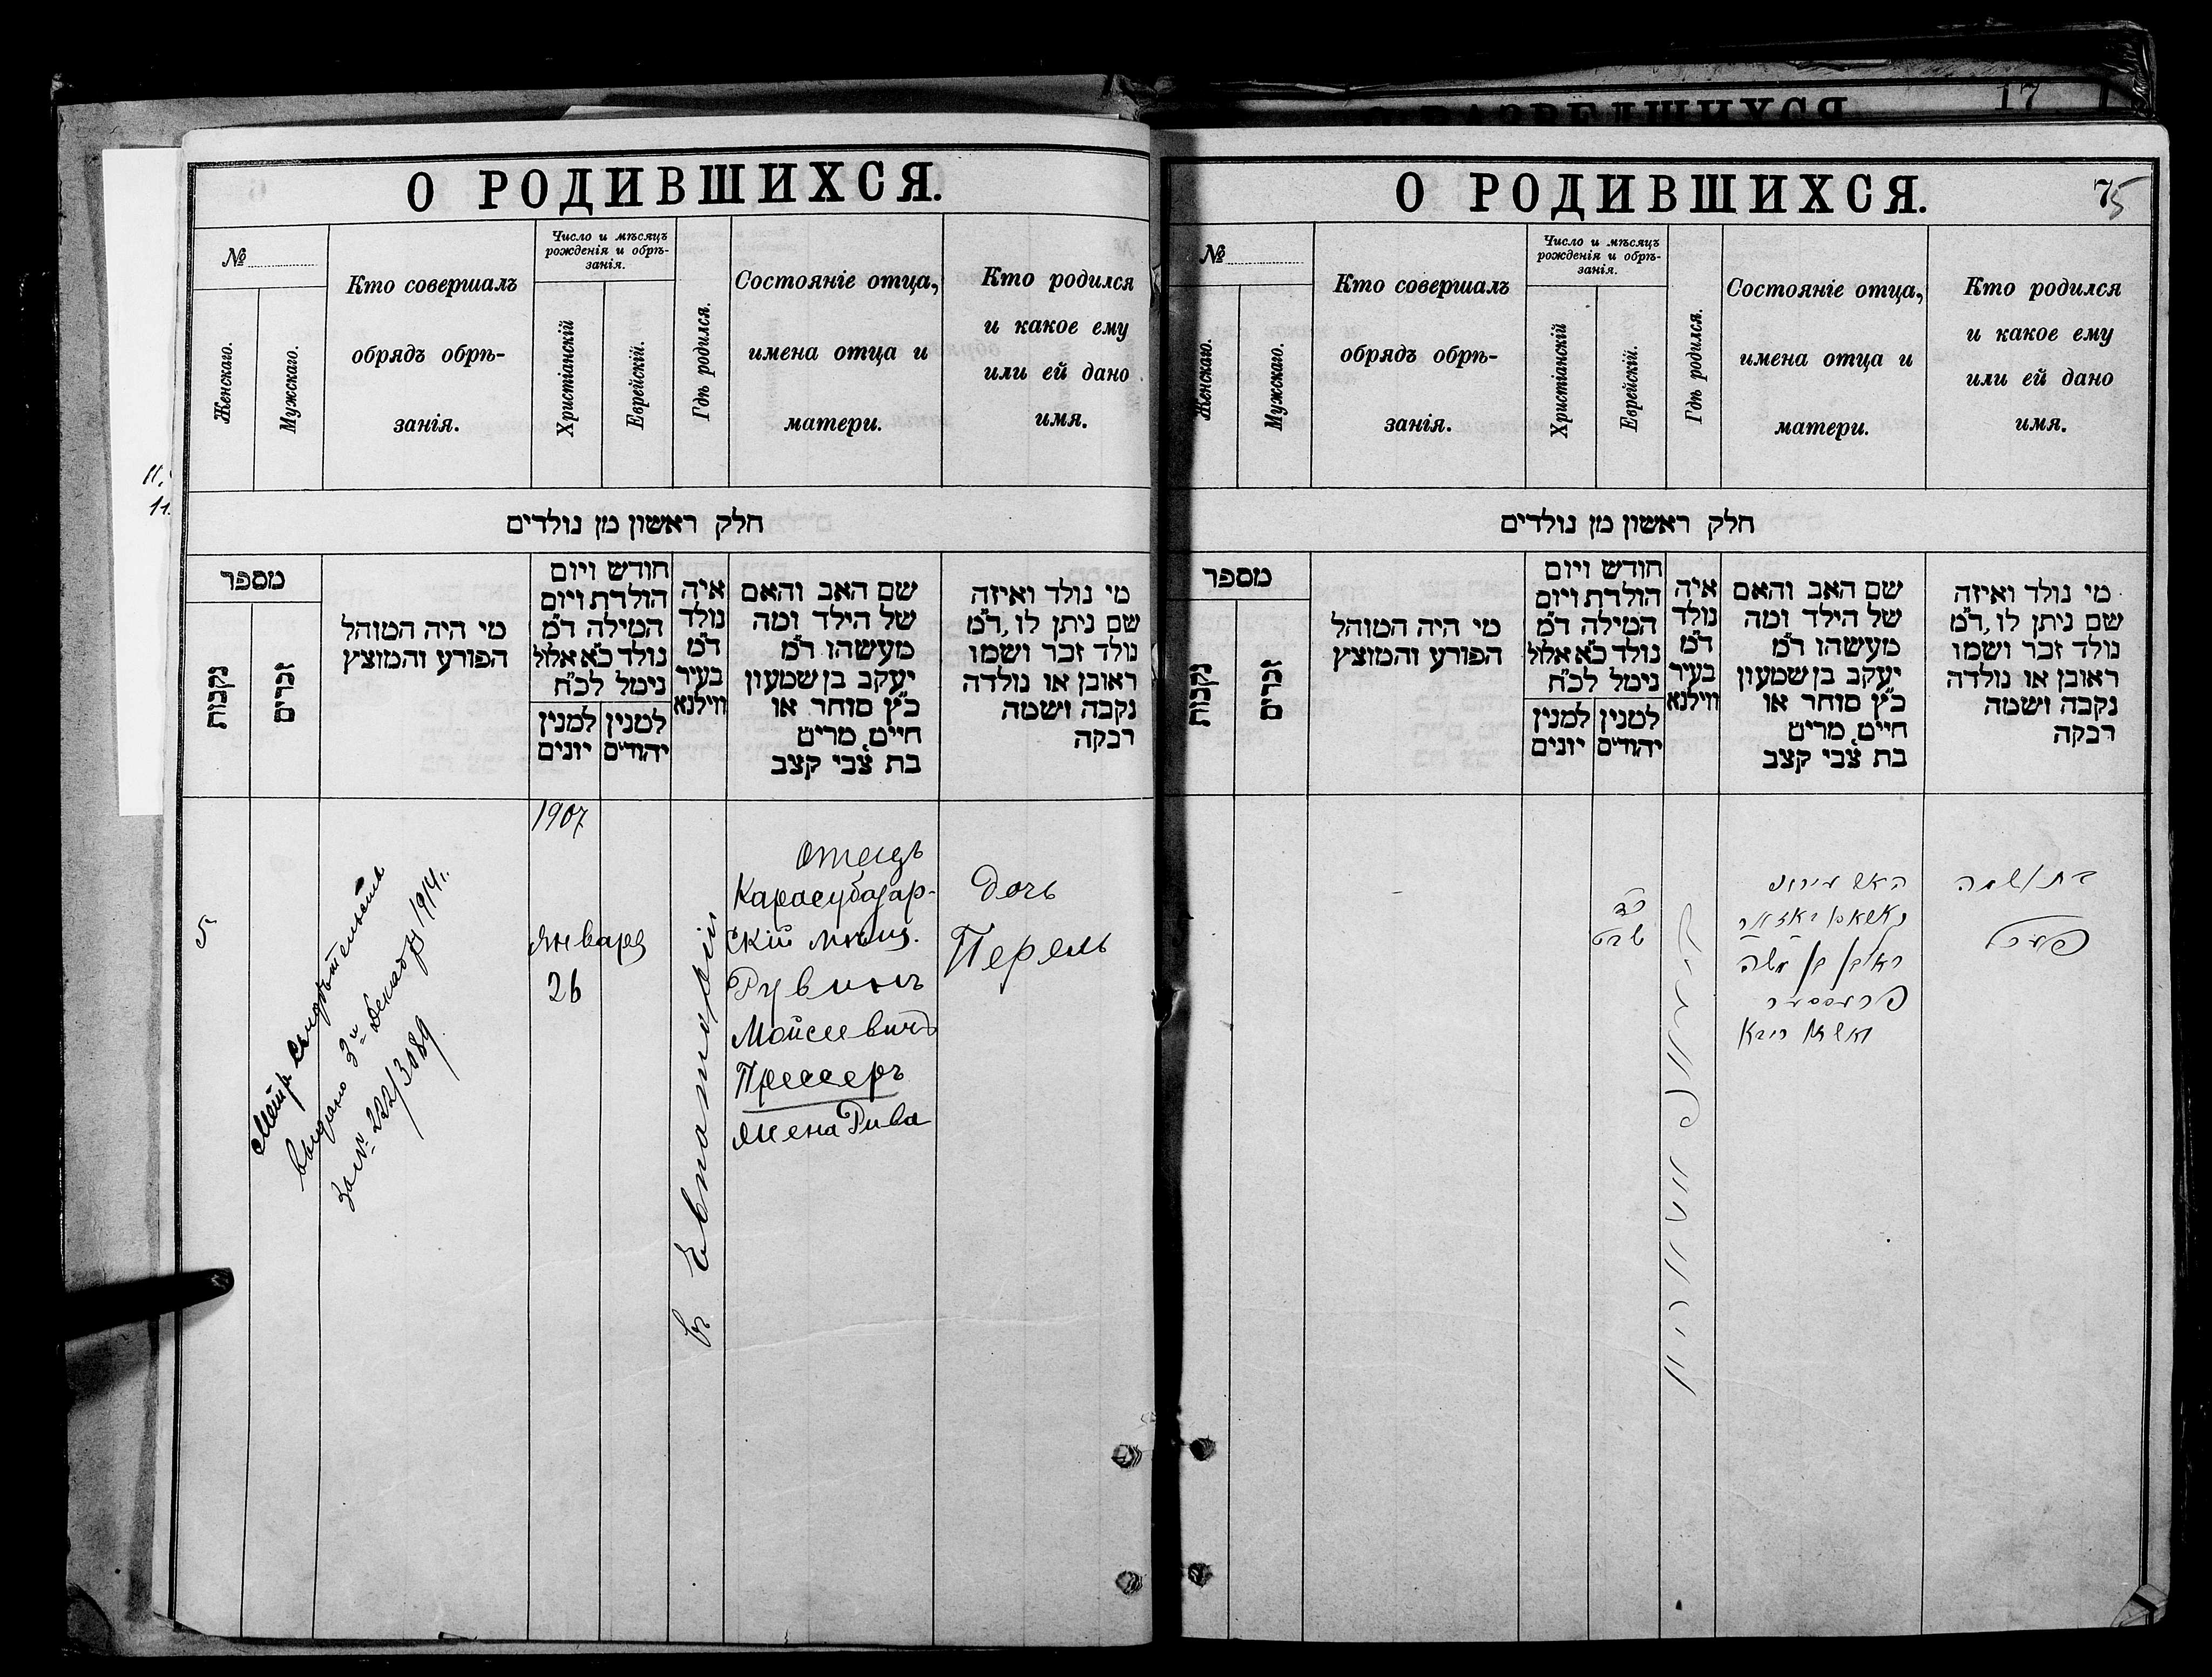 О РОДИВШИХСЯ.
№
Женскаго.
Мужскаго.
Кто совершалъ
обрядъ обрѣ-
занія.
Число и мѣсяцъ
рожденія и обрѣ-
занія.
Христіанскій
Еврейскій.
Гдѣ родился.
Состояніе отца,
имена отца и
матери.
Кто родился
и какое ему
или ей дано
имя.
חלק ראשון מן נולדים
מספר
נקבות
זכרים
מי היה המוהל
הפורע והמוצץ
חודש ויום
הולדת ויום
המילה ד״מ
נולד כ״א אלול
נימל לכ״ח
למנין יונים
למנין יהודים
איה
נולד
ד״מ
בעיר
ווילנא
שם האב והאם
של הילד ומה
מעשהו ד״מ
יעקב בן שמעון
כ״ץ סוחר או
חייט, מרים
בת צבי קצב
מי נולד ואיזה
שם ניתן לו, ד״מ
נולד זכר ושמו
ראובן או נולדה
נקבה ושמה
רבקה
5
Метр. свидѣтельство
выдано 3го Декабря 1914 г.
за № 222/3089
1907
Января
26
в г. Евпаторіи
Отецъ
Карасубазар-
скій мѣщ.
Рувинъ
Мойсеевичъ
Прессеръ
жена Рива
Дочь
Перель
О РОДИВШИХСЯ.
75
№
Женскаго.
Мужскаго.
Кто совершалъ
обрядъ обрѣ-
занія.
Число и мѣсяцъ
рожденія и обрѣ-
занія.
Христіанскій
Еврейскій.
Гдѣ родился.
Состояніе отца,
имена отца и
матери.
Кто родился
и какое ему
или ей дано
имя.
חלק ראשון מן נולדים
מספר
נקבות
זכרים
מי היה המוהל
הפורע והמוצץ
חודש ויום
הולדת ויום
המילה ד״מ
נולד כ״א אלול
נימל לכ״ח
למנין יונים
למנין יהודים
איה
נולד
ד״מ
בעיר
ווילנא
שם האב והאם
של הילד ומה
מעשהו ד״מ
יעקב בן שמעון
כ״ץ סוחר או
חייט, מרים
בת צבי קצב
מי נולד ואיזה
שם ניתן לו, ד״מ
נולד זכר ושמו
ראובן או נולדה
נקבה ושמה
רבקה
שבט
ראובן בן משה
פרעססער
ואשתו ריווא
בת ושמה
פערל
17
О РАЗВЕДШИХСЯ